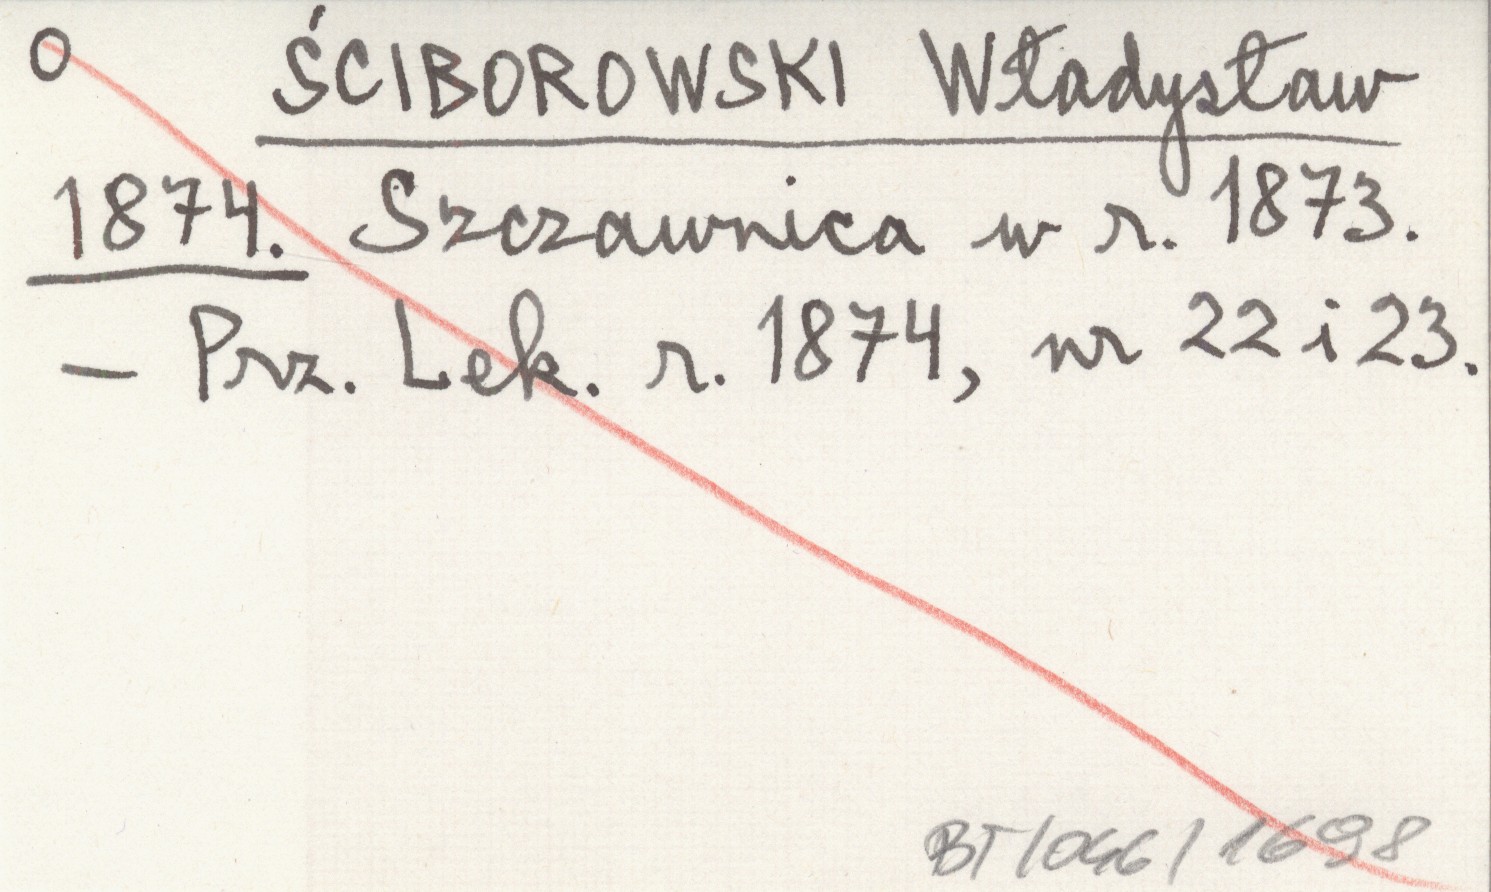 O ŚCIBOROWSKI Władysław
1874. Szczawnica w r. 1873.
– Prz. Lek. r. 1874, nr 22 i 23.
BT/046/1698